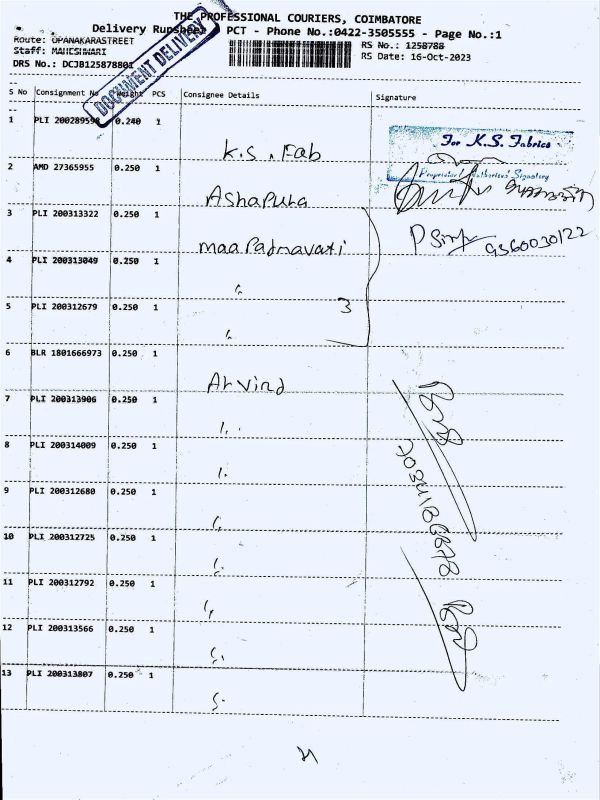 THE PROFESSIONAL COURIERS, COIMBATORE
Delivery Runsheet PCT - Phone No.:0422-3505555 - Page No.:1
Route: OPANAKARASTREET
RS No.: 1258788
Staff: MAHESHWARI
RS Date: 16-Oct-2023
DRS No.: DCJB125878801
DOCUMENT DELIVERY
S No Consignment No Weight PCS Consignee Details Signature
1 PLI 200289598 0.240 1 K.S. Fab
For K.S. Fabrics
Proprietor / Authorised Signatory
2 AMD 27365955 0.250 1 Ashapura
3 PLI 200313322 0.250 1 maa Padmavati
9360030122
4 PLI 200313049 0.250 1 "
5 PLI 200312679 0.250 1 "
3
6 BLR 1801666973 0.250 1 Arvind
7 PLI 200313906 0.250 1 "
8 PLI 200314009 0.250 1 "
9 PLI 200312680 0.250 1 "
10 PLI 200312725 0.250 1 "
11 PLI 200312792 0.250 1 "
12 PLI 200313566 0.250 1 "
13 PLI 200313807 0.250 1 "